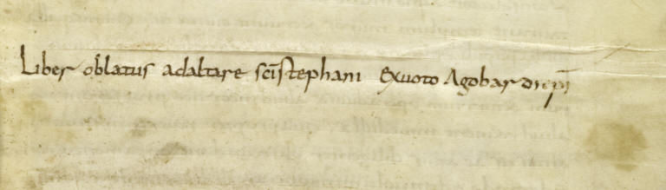 Liber oblatus adaltare sc̄i stephani exvoto Agobardi epī